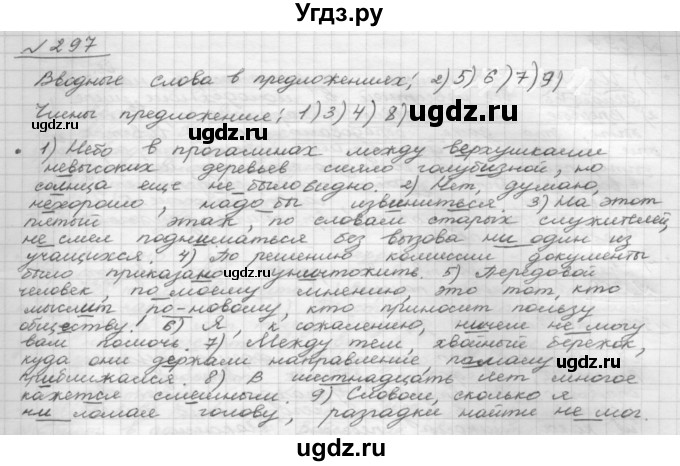 Угдз.ру
№297
Вводные слова в предложениях: 2) 5) 6) 7) 9)
Члены предложения: 1) 3) 4) 8)
• 1) Небо в прогалинах между верхушками
невысоких деревьев сияло голубизной, но
солнца еще не было видно. 2) Нет, думаю,
нехорошо, надо бы извиниться 3) На этот
пятый этаж, по словам старых служителей,
не смел подниматься без вызова ни один из
учащихся. 4) По решению комиссии документы
было приказано уничтожить. 5) Передовой
человек, по моему мнению, это тот, кто
мыслит по-новому, кто приносит пользу
обществу. 6) Я, к сожалению, ничем не могу
вам помочь. 7) Между тем, хвойный бережок,
куда они держали направление помалу
приближался. 8) В шестнадцать лет многое
кажется смешным. 9) Словом, сколько я
ни ломал голову, разгадки найти не мог.
ugdz.ru ugdz.ru ugdz.ru